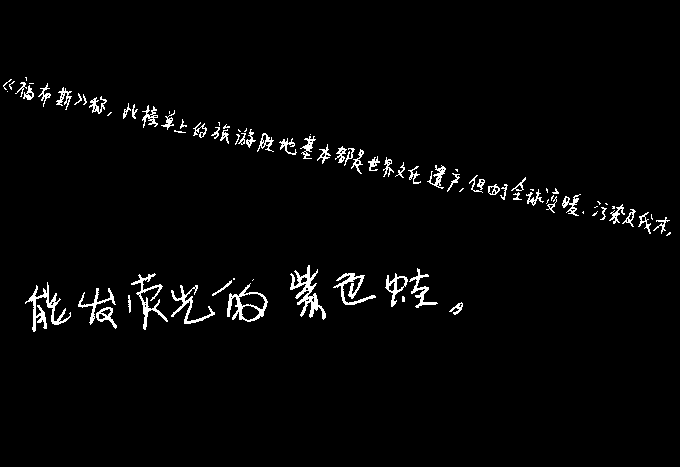 《福布斯》称，此榜单上的旅游胜地基本都是世界文化遗产，但由于全球变暖、污染及伐木，
能发荧光的紫色蛙。